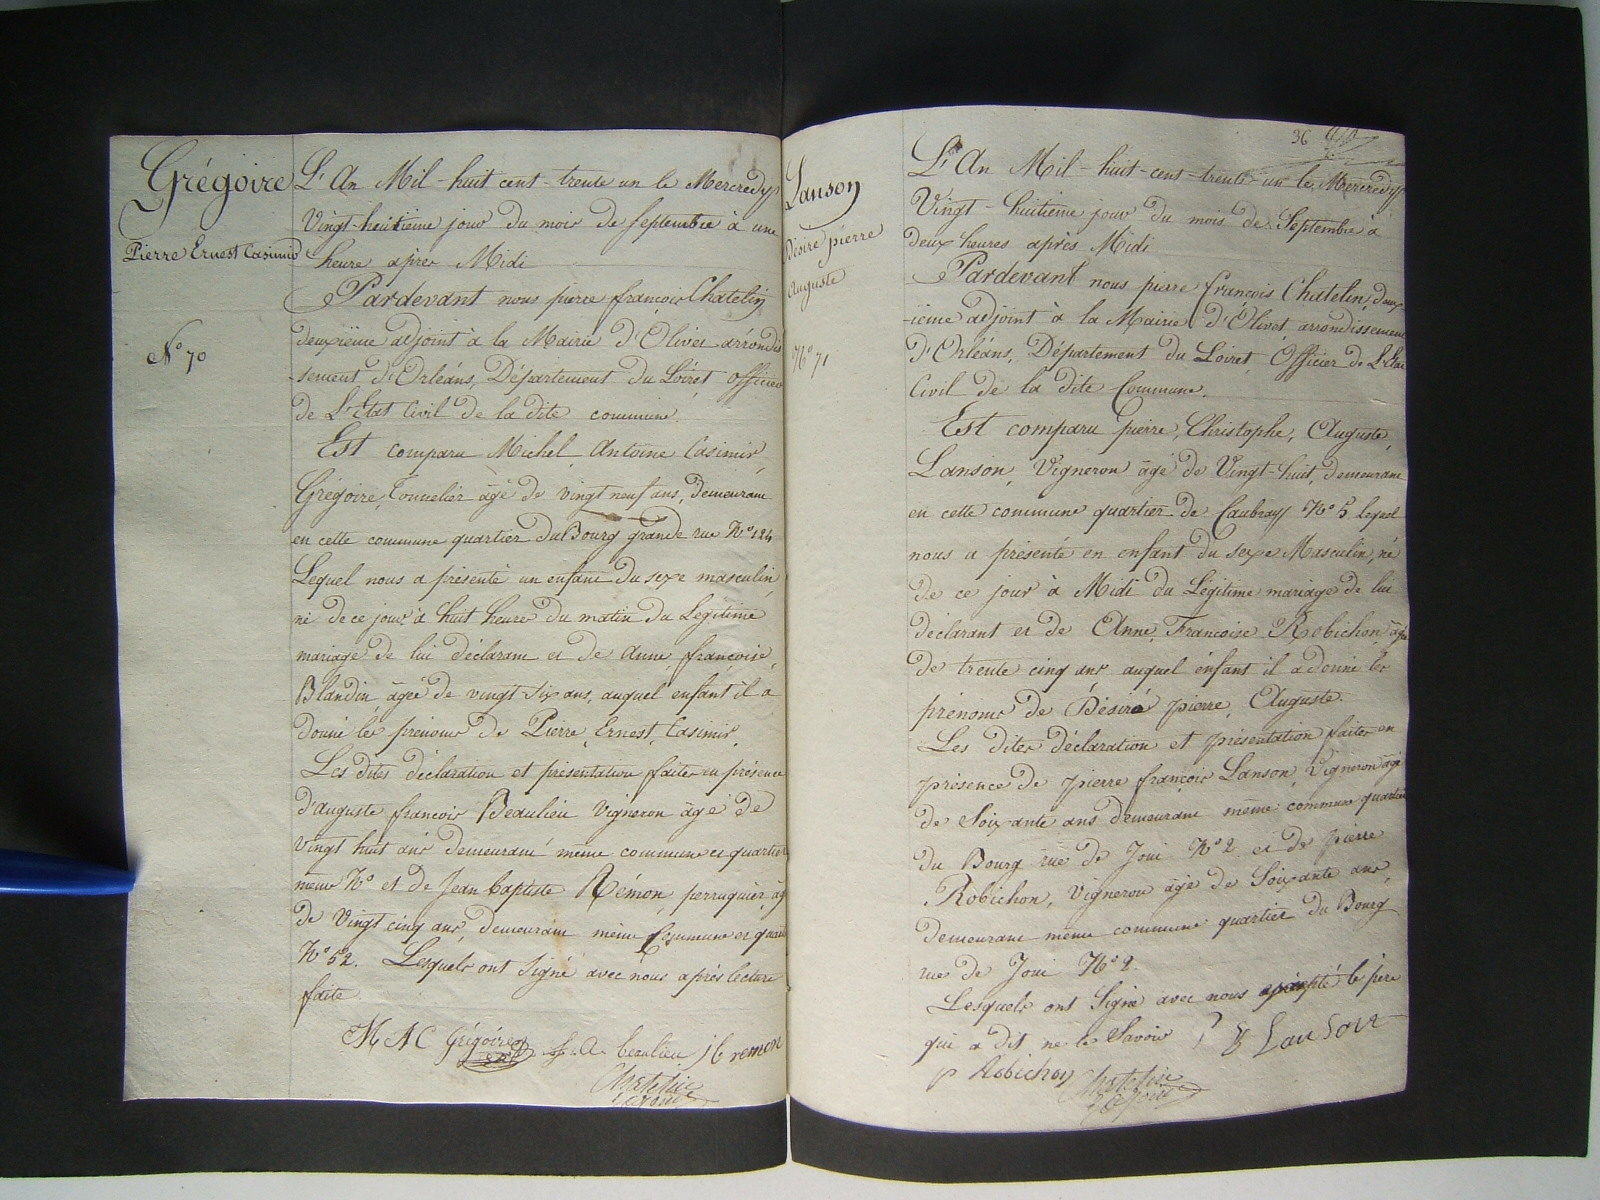 Grégoire
Pierre Ernest Casimir
N.o 70
L'An Mil-huit cent-trente un le Mercredy
Vingt-heuitieme jour du mois de septembre à une
heure après Midi
Pardevant nous pierre françois Chatelin
deuxieme adjoint à la Mairie d'Olivet arrondis
-sement d'Orléans, Département du Loiret officier
de L'Etat Civil de la dite commune.
Est comparu Michel Antoine Casimir,
Grégoire, Tonnelier âgé de vingt neuf ans, demeurant
en cette commune quartier du Bourg grande rue N.o 124
Lequel nous a présenté un enfant du sexe masculin
né de ce jour à huit heures du matin du Légitime
mariage de lui déclarant et de Anne, françoise,
Blandin, âgée de vingt six ans, auquel enfant il a
donné les prénoms de Pierre, Ernest, Casimir.
Les dites déclaration et présentation faites en présence
d'auguste françois Beaulieu Vigneron âgé de
vingt huit ans demeurant même commune et quartier
même N.o et de Jean baptiste Rémon, perruquier, âg
de Vingt cinq ans, demeurant même Commune et quart
N.o 52. Lesquels ont Signé avec nous après lecture
faite.
M A C Grégoire f. a. beaulieu j b remon
Chatelin
36
Lanson
Désiré pierre
Auguste
N.o 71
L'An Mil-huit-cent-trente-un le Mercredy
Vingt-huitieme jour du mois de Septembre à
deux heures après Midi
Pardevant nous pierre françois Chatelin, deux-
-ieme adjoint à la Mairie d'Olivet arrondissement
d'Orléans, Département du Loiret, Officier de L'Etat
Civil de la dite Commune.
Est comparu pierre, Christophe, Auguste,
Lanson, Vigneron âgé de Vingt-huit, demeurant
en cette commune quartier de Caubray N.o 5 Lequel
nous a présenté en enfant du sexe Masculin, né
de ce jour à Midi du Légitime mariage de lui
déclarant et de Anne, Françoise Robichon âgée
de trente cinq ans auquel enfant il a donné les
prénoms de Désiré pierre, Auguste.
Les dites déclaration et présentation faites en
présence de pierre françois Lanson, Vigneron âgé
de Soixante ans demeurant même commune quartier
du Bourg rue de Joui N.o 2 et de pierre
Robichon, Vigneron âgé de Soixante ans,
demeurant même commune quartier du Bourg
rue de Joui N.o 2.
Lesquels ont Signé avec nous excepté le père
qui a dit ne le Savoir Lanson
p Robichon Chatelin